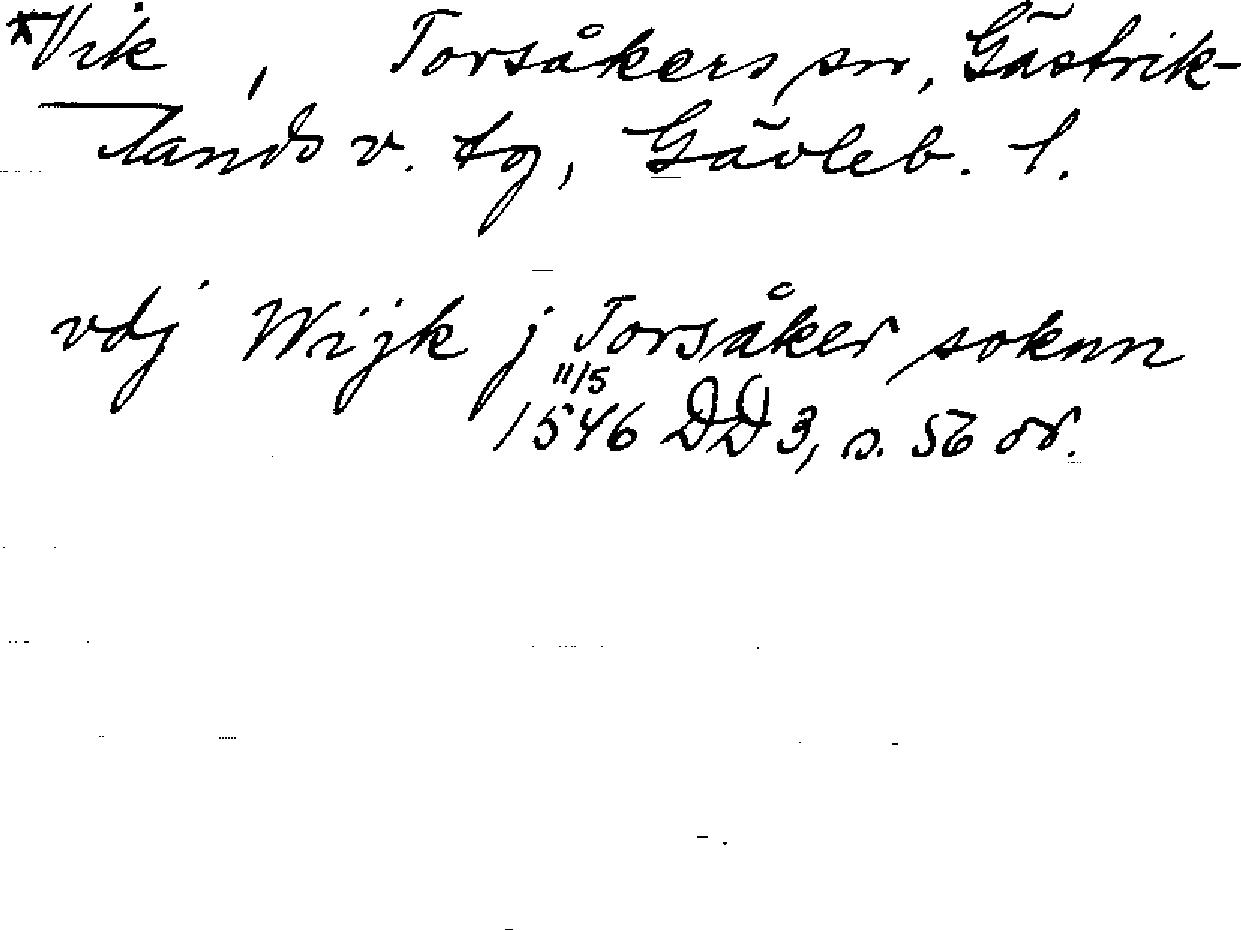 *Vik, Torsåkers sn, Gästrik-
lands v. tg, Gävleb. l.
vdj Wijk j Torsåker soknn
11/5
1546 DD 3, s. 56 or.